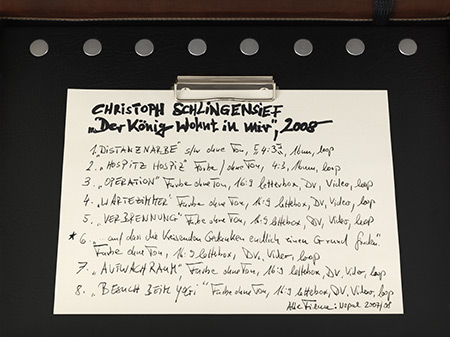 CHRISTOPH SCHLINGENSIEF
„Der König wohnt in mir", 2008
1. „DISTANZNARBE" s/w ohne Ton, 4:3, 16mm, loop
2. „HOSPITZ HOSPIZ" Farbe / ohne Ton, 4:3, 16mm, loop
3. „OPERATION" Farbe ohne Ton, 16:9 letterbox, DV, Video, loop
4. „WARTEZIMMER" Farbe ohne Ton, 16:9 letterbox, DV, Video, loop
5. „VERBRENNUNG" Farbe ohne Ton, 16:9 letterbox, DV, Video, loop
* 6. „... auf dass die Gedanken endlich einen Grund finden."
Farbe ohne Ton, 16:9 letterbox, DV, Video, loop
7. „AUFWACHRAUM", Farbe ohne Ton, 16:9 letterbox, DV, Video, loop
8. „BESUCH BEIM YOGI" Farbe ohne Ton, 16:9 letterbox, DV, Video, loop
Alle Filme: Nepal 2007/08